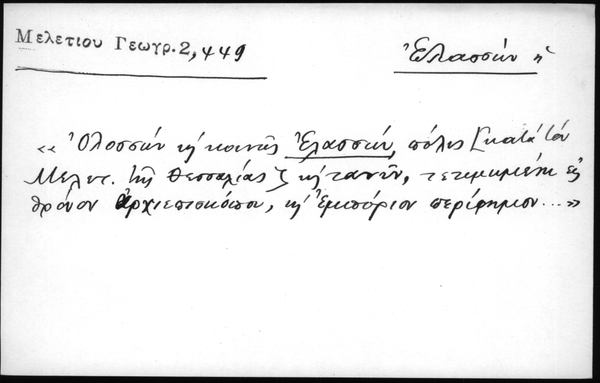 Μελετίου Γεωγρ. 2, 449
Ἐλασσών ἡ
« Ὀλοσσών κ̀ κοινῶς Ἐλασσών, πόλις [κατὰ τὸν
Μελετ. τῆς Θεσσαλίας] κ̀ τανῦν, τετιμημένη εἰς
θρόνον ἀρχιεπισκόπου, κ̀ Ἐμπόριον περίφημον... »